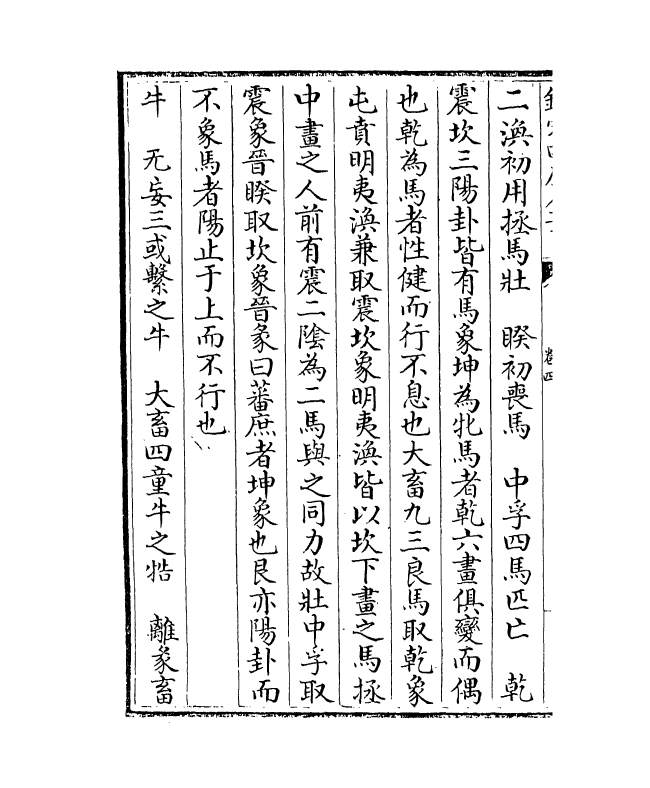 卷四
二渙初用拯馬壯　睽初喪馬　中孚四馬匹亡　乾
震坎三陽卦皆有馬象坤為牝馬者乾六畫俱變而偶
也乾為馬者性健而行不息也大畜九三良馬取乾象
屯賁明夷渙兼取震坎象明夷渙皆以坎下畫之馬拯
中畫之人前有震二陰為二馬與之同力故壯中孚取
震象晉睽取坎象晉彖曰蕃庶者坤象也艮亦陽卦而
不象馬者陽止于上而不行也
牛　无妄三或繫之牛　大畜四童牛之牿　離彖畜